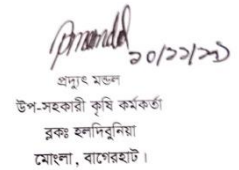 ২০/১১/২১
প্রদ্যুৎ মন্ডল
উপ-সহকারী কৃষি কর্মকর্তা
ব্লকঃ হলদিবুনিয়া
মোংলা, বাগেরহাট।